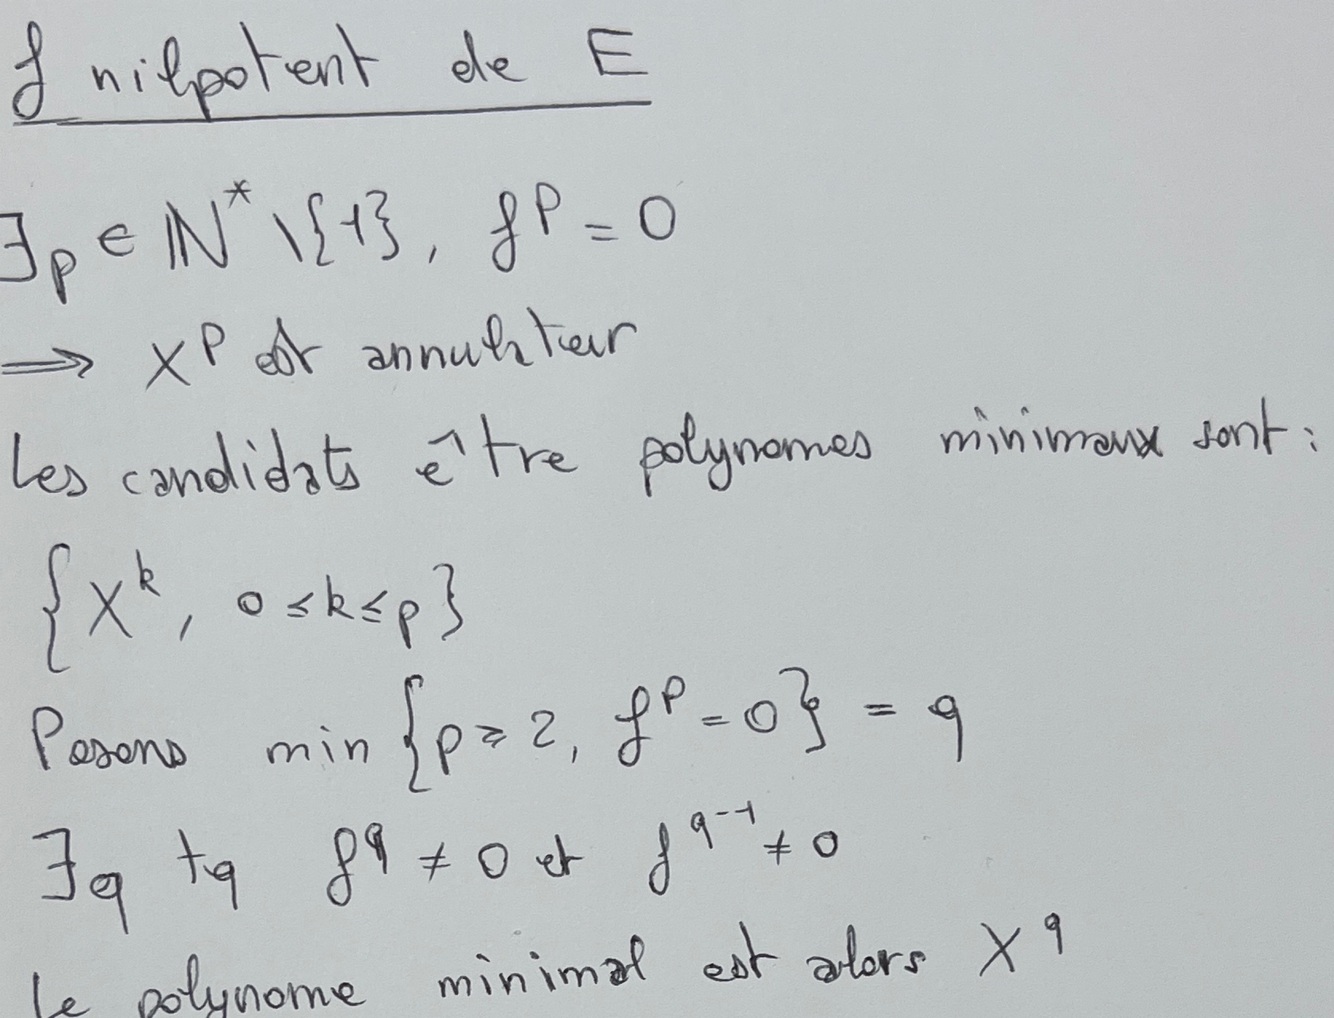 f nilpotent de E
∃p ∈ ℕ* \ {1}, f^p = 0
⟹ X^p est annulateur
Les candidats être polynomes minimaux sont :
{X^k, 0 ≤ k ≤ p}
Posons min {p ≥ 2, f^p = 0} = q
∃q tq f^q ≠ 0 et f^{q-1} ≠ 0
Le polynome minimal est alors X^q